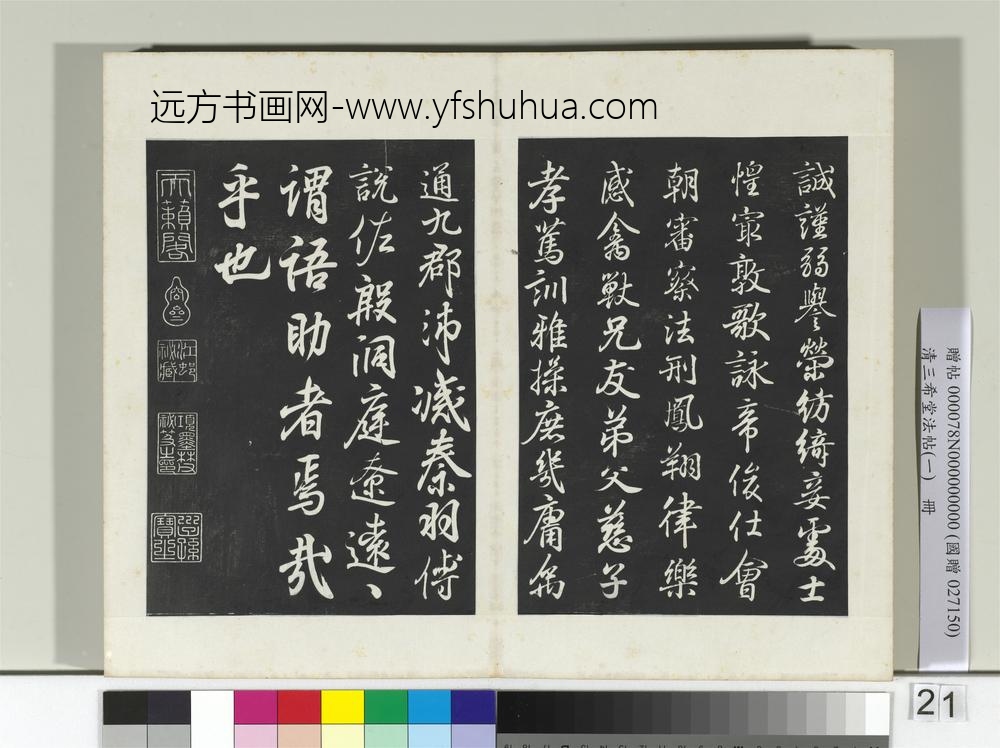 远方书画网-www.yfshuhua.com
誠謹弱譽榮紡綺妾處士
惶寂敦歌詠帝俊仕會
朝審察法刑鳳翔律樂
感禽獸兄友弟父慈子
孝篤訓雅操庶幾庸
通九郡沛滅秦羽傅
說佐殿洞庭遼遠、
謂語助者焉哉
乎也
天籟閣
江邨
祕藏
贈帖 000078N000000000 (國贈 027150)
清三希堂法帖(一) 冊
21